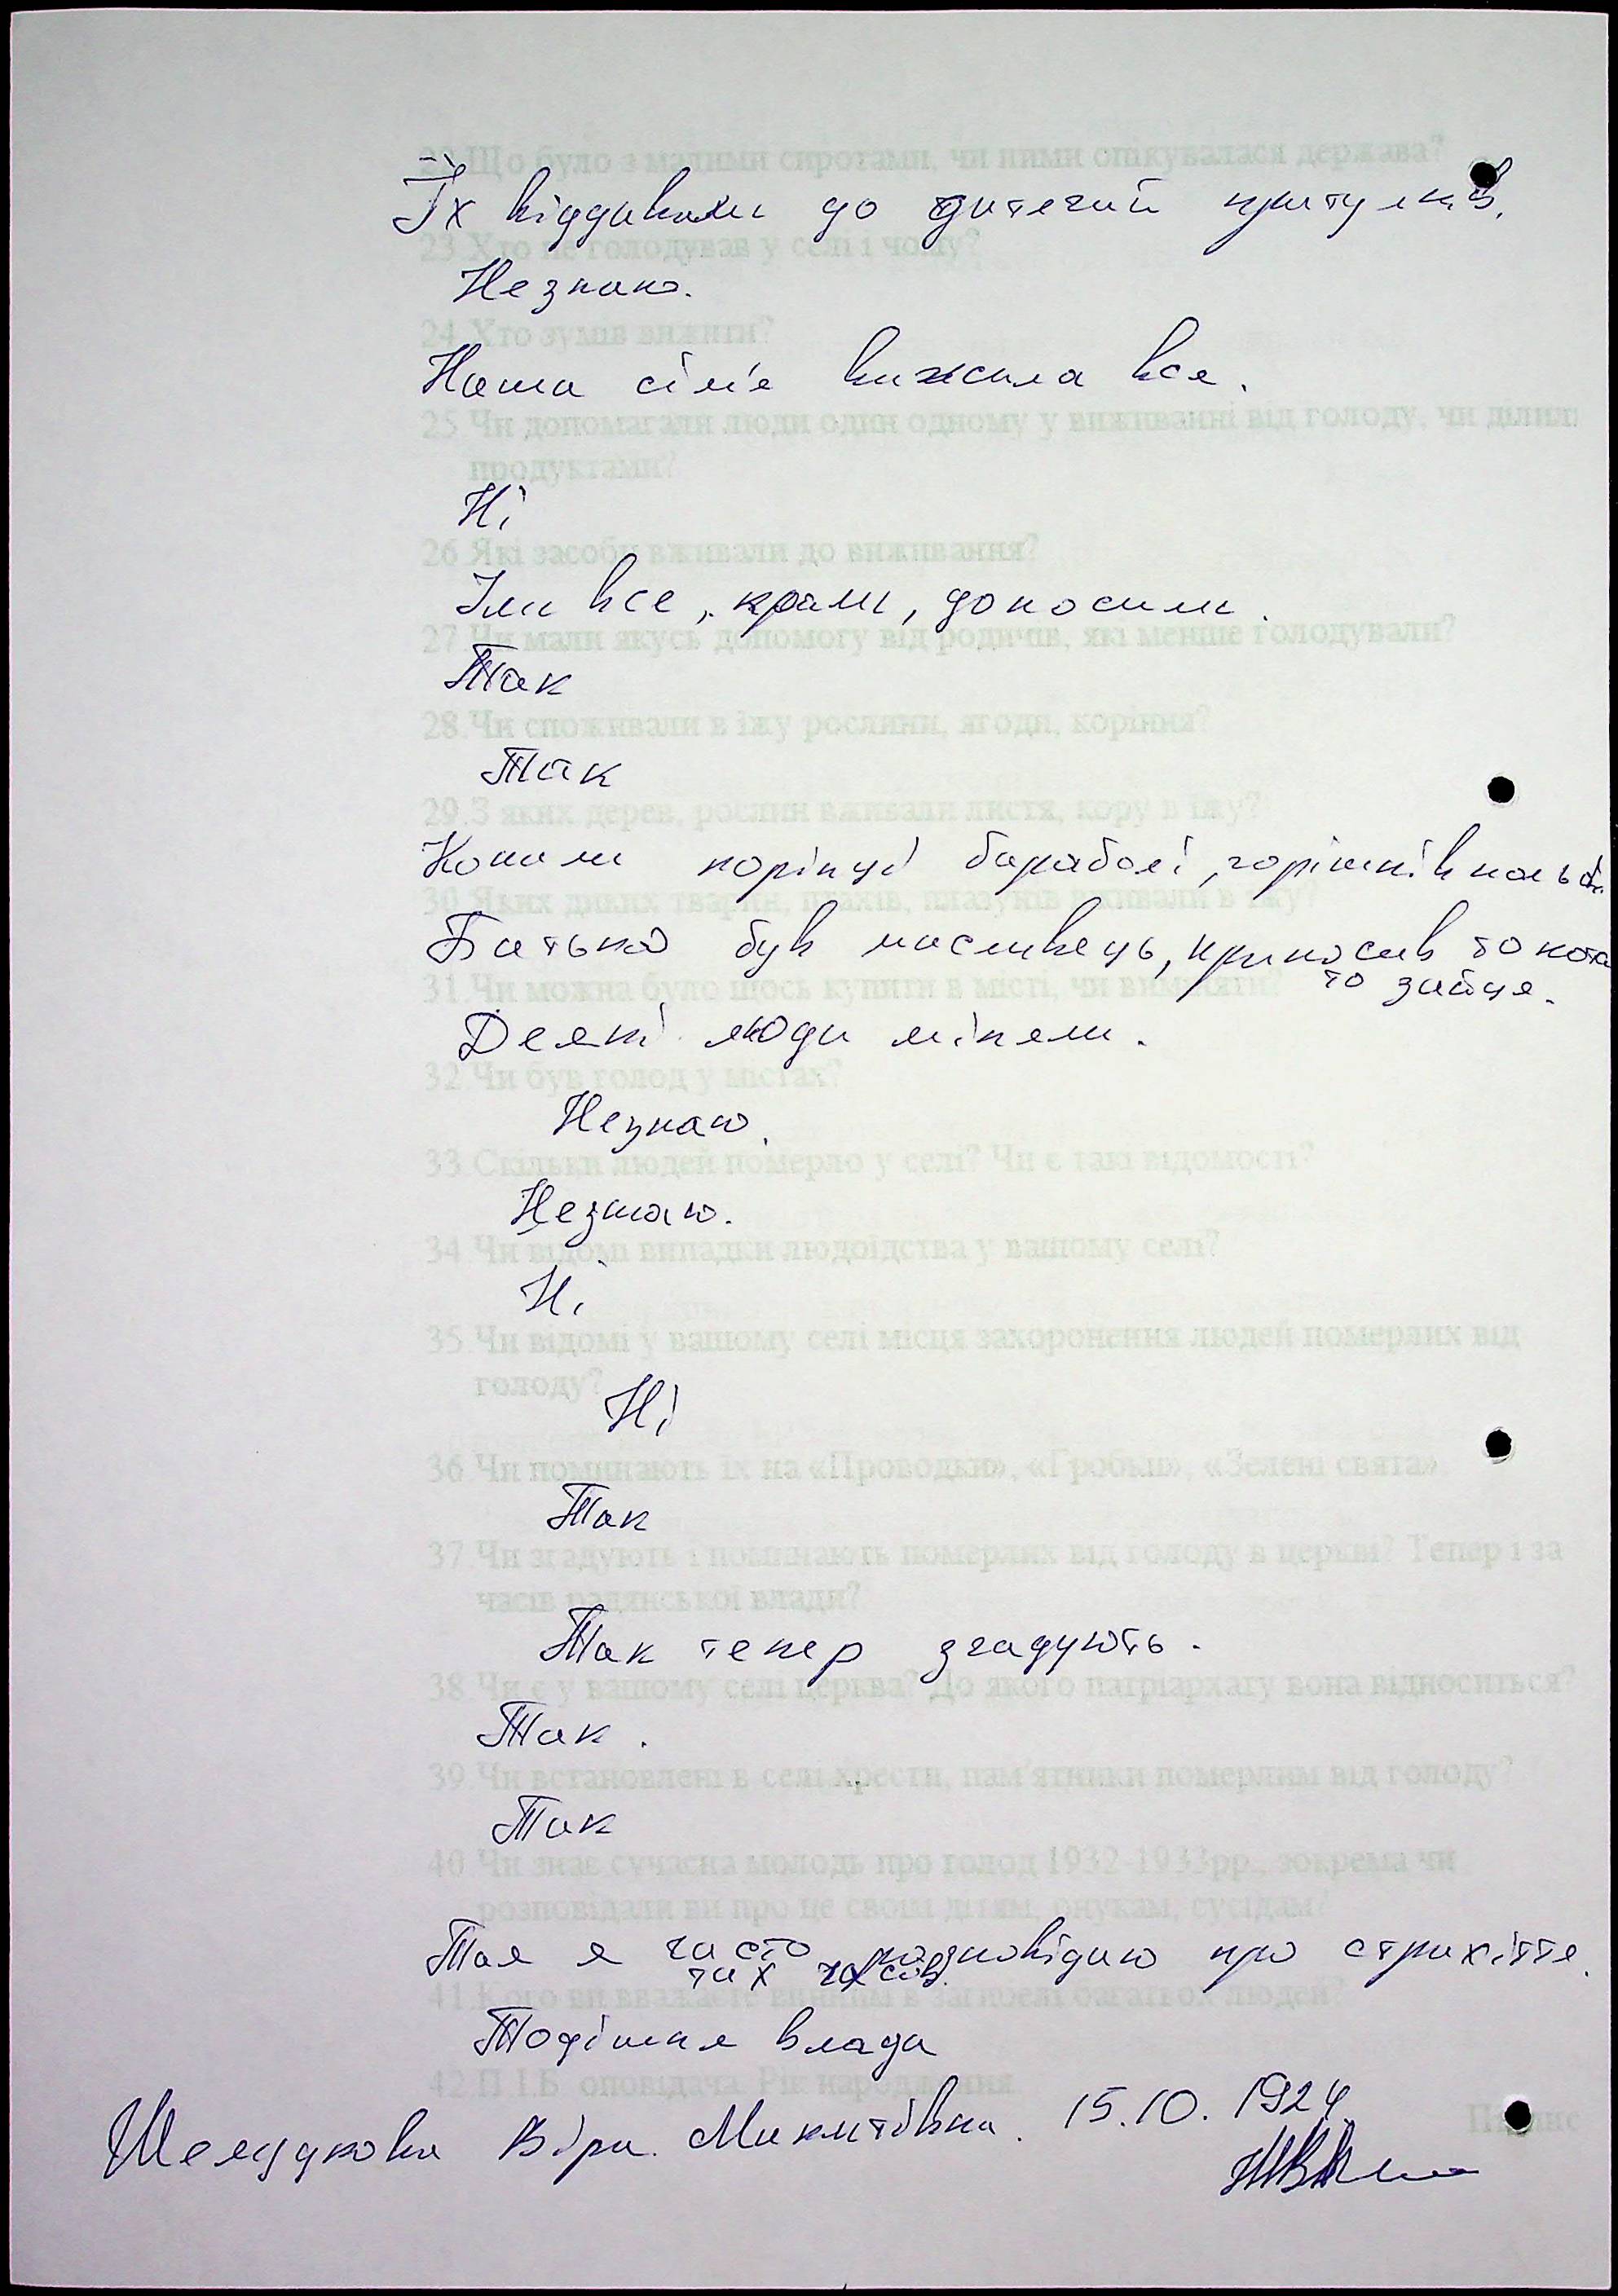 22.Що було з малими сиротами, чи ними опікувалася держава?
Їх віддивали до дитячий притулків.
23.Хто не голодував у селі і чому?
Незнаю.
24.Хто зумів вижити?
Наша сім'я вижила вся.
25.Чи допомагали люди один одному у виживанні від голоду, чи ділили
продуктами?
Ні
26.Які засоби вживали до виживання?
Їли все, крали, доносили.
27.Чи мали якусь допомогу від родичів, які менше голодували?
Так
28.Чи споживали в їжу рослини, ягоди, коріння?
Так
29.З яких дерев, рослин вживали листя, кору в їжу?
Копали корінці бараболі,
30.Яких диких тварин, птахів, плазунів вживали в їжу?
Батько був мисливець, приносив то кота
то зайця.
31.Чи можна було щось купити в місті, чи виміняти?
Деякі люди міняли.
32.Чи був голод у містах?
Незнаю.
33.Скільки людей померло у селі? Чи є такі відомості?
Незнаю.
34.Чи відомі випадки людоїдства у вашому селі?
Ні
35.Чи відомі у вашому селі місця захоронення людей померлих від
голоду?
Ні
36.Чи поминають їх на «Проводки», «Гробки», «Зелені свята»
Так
37.Чи згадують і поминають померлих від голоду в церкві? Тепер і за
часів радянської влади?
Так тепер згадують.
38.Чи є у вашому селі церква? До якого патріархату вона відноситься?
Так.
39.Чи встановлені в селі хрести, пам'ятники померлим від голоду?
Так
40.Чи знає сучасна молодь про голод 1932-1933рр., зокрема чи
розповідали ви про це своїм дітям, онукам, сусідам?
Так я часто розповідаю про страхіття
тих часів.
41.Кого ви вважаєте винним в загибелі багатьох людей?
Тодішня влада
42.П.І.Б. оповідача. Рік народження.
Підпис
Віра Микитівна. 15.10.1924